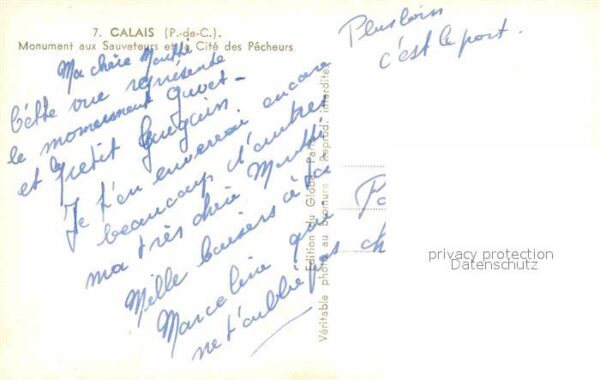 7. CALAIS (P.-de-C.).
Monument aux Sauveteurs et la Cité des Pêcheurs
Ma chère Manthé
Cette vue représente
le momument Gavet-
et le petit Gauguin.
Je t'en enverrai encore
beaucoup d'autres
ma très chère Manthé
Mille baisers à
Marceline que
ne t'oublie pas
Plus loin
c'est le port.
Edition du Globe, Paris
Véritable photo au bromure - Reprod. interdite
privacy protection
Datenschutz